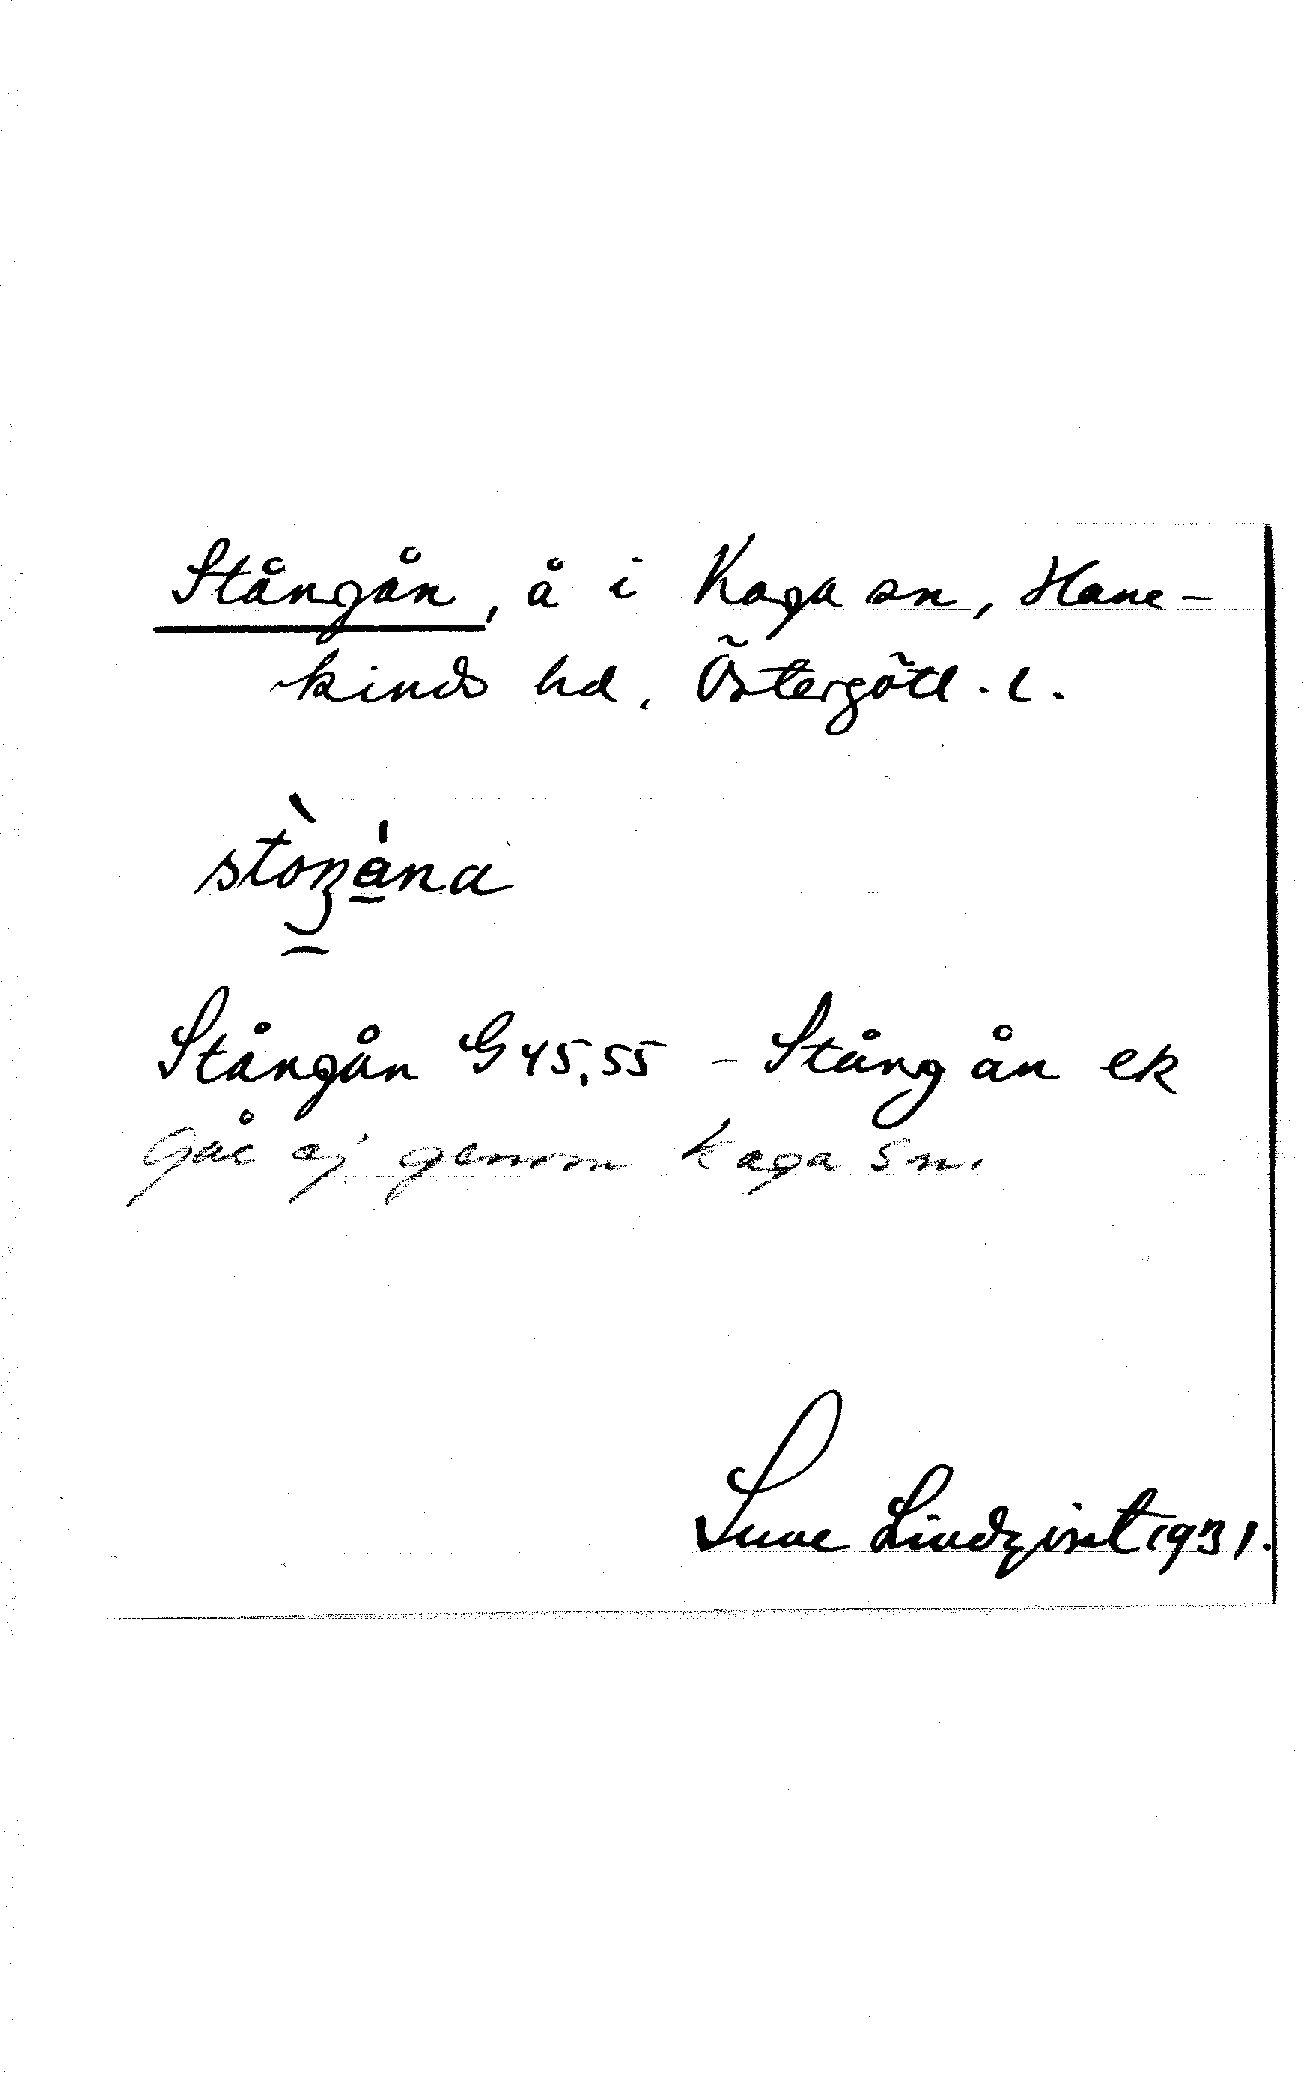 Stångån, å i Kaga sn, Hane-
kinds hd. Östergötl. l.
Stångån G 45,55 - Stång ån ek
går ej genom Kaga sn.
Sune Lindqvist 1931.